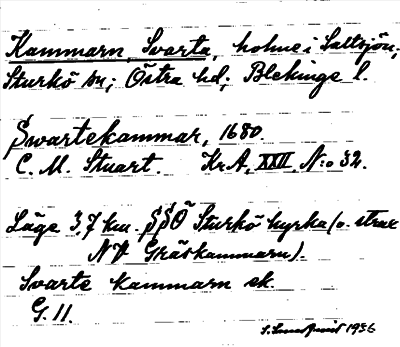 Kammarn, Svarta, holme i Saltsjön;
Sturkö sn; Östra hd; Blekinge l.
Swartekammar, 1680.
C. M. Stuart. Kr.A. XXII, N:o 32.
Läge 3,7 km. SSÖ Sturkö kyrka (o. strax
NV Gräskammarn).
Svarte kammarn ek.
G. 11.
S. Lundquist 1936